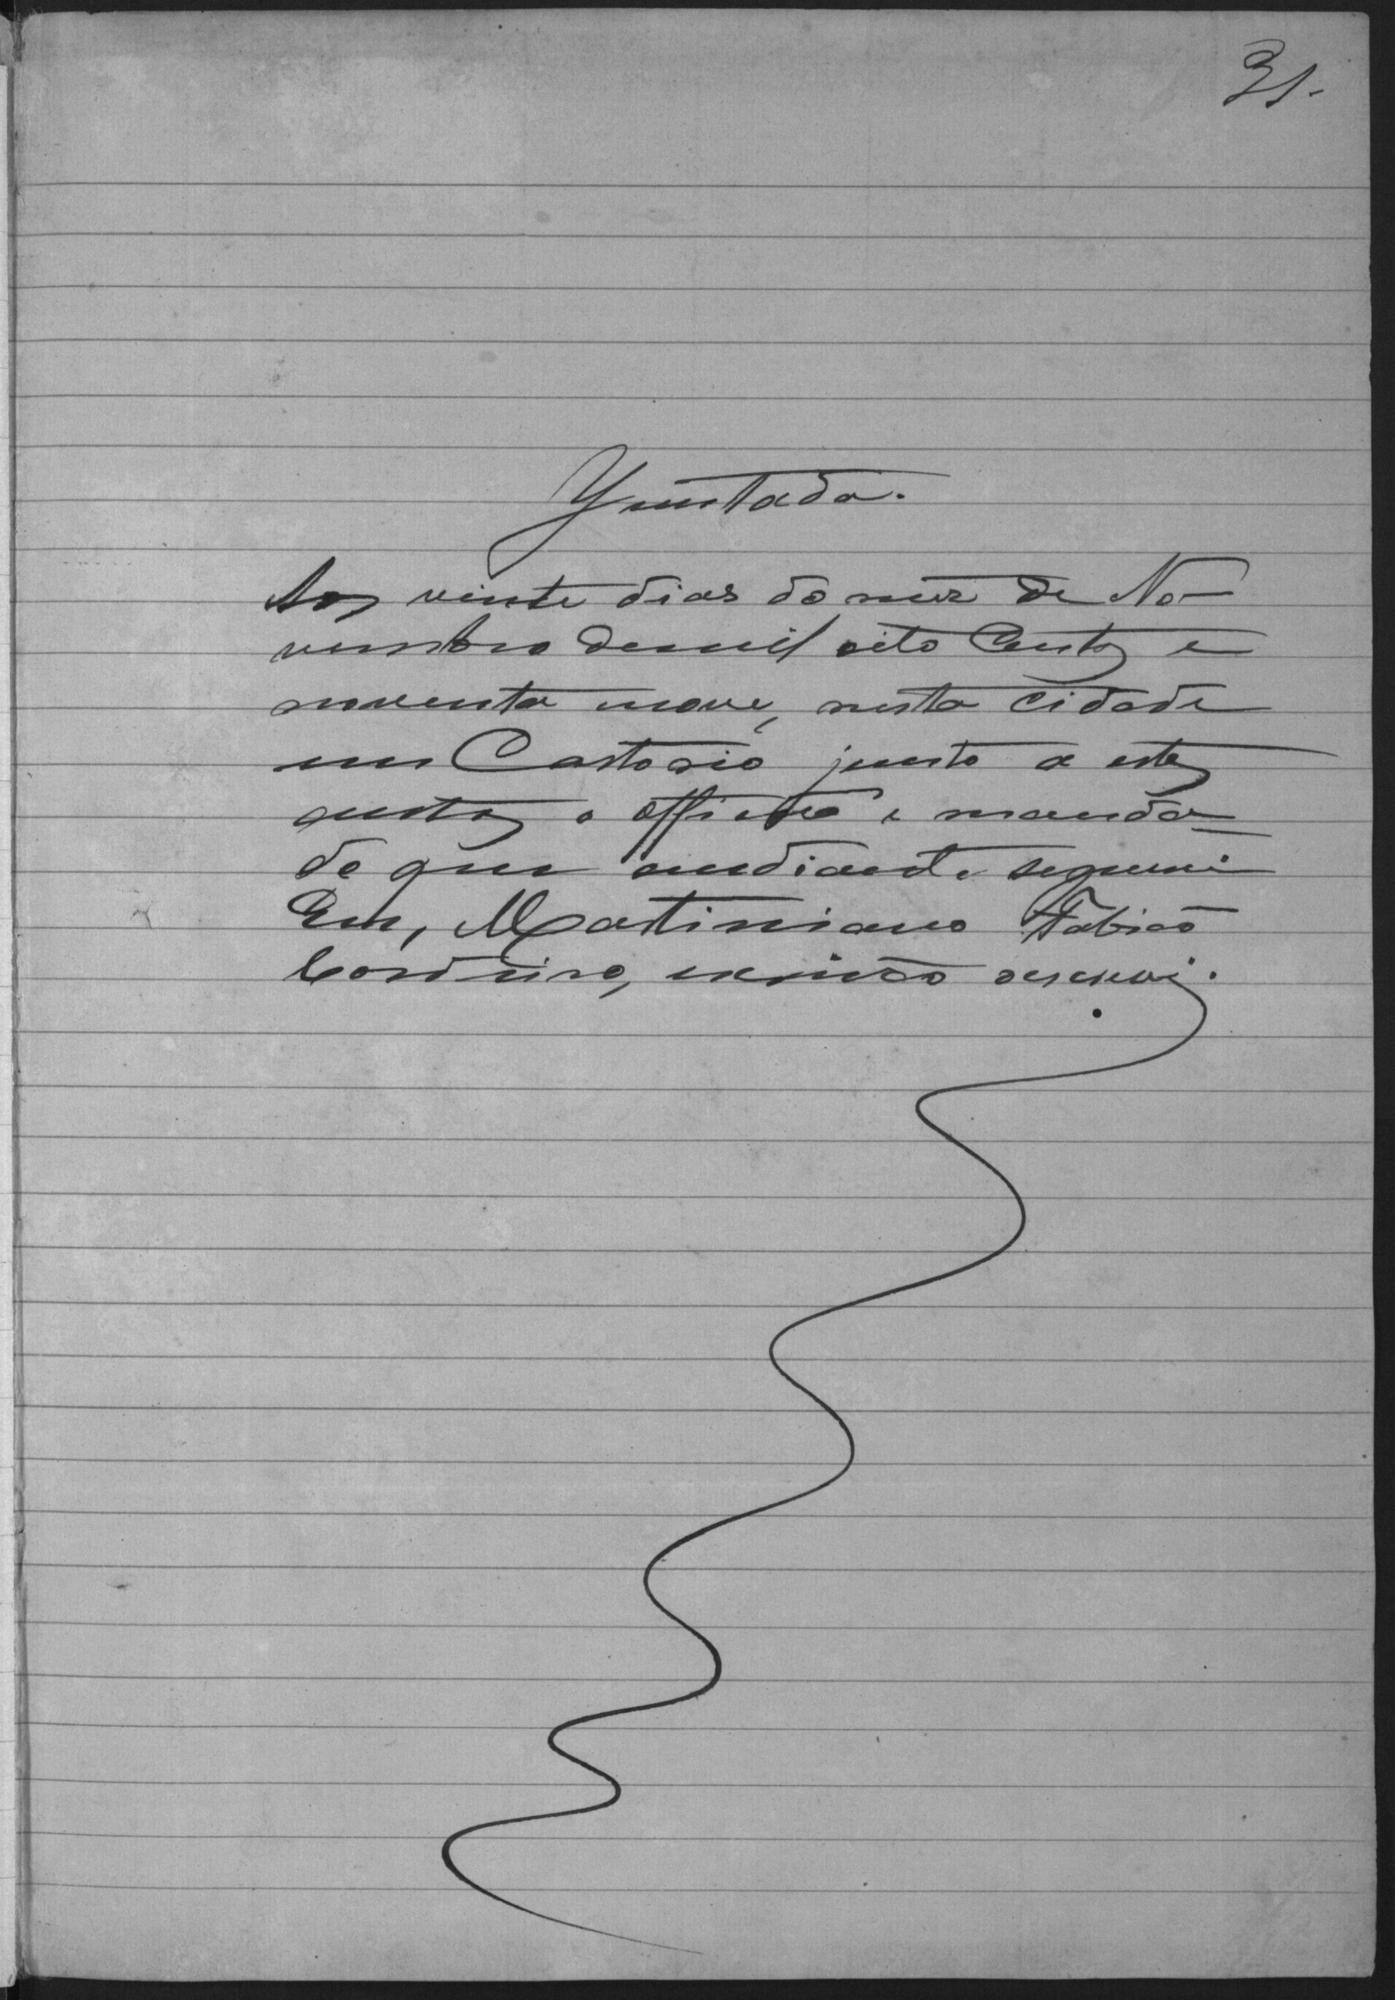 31.
Juntada.
Aos vinte dias do mez de No-
vembro de mil oito centos e
noventa nove, nesta cidade
em Cartorio junto a estes
autos o officio e manda-
do que audiante seguem
Eu, Martiniano Fabião
Cordeiro, escrivão escrevi.